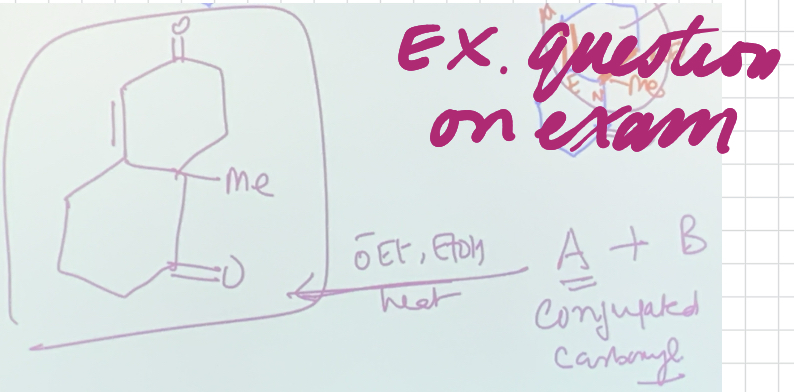 O
EX. question
on exam
Me
Me
O
ōEt, EtOH
heat
A + B
Conjugated
Carbonyl